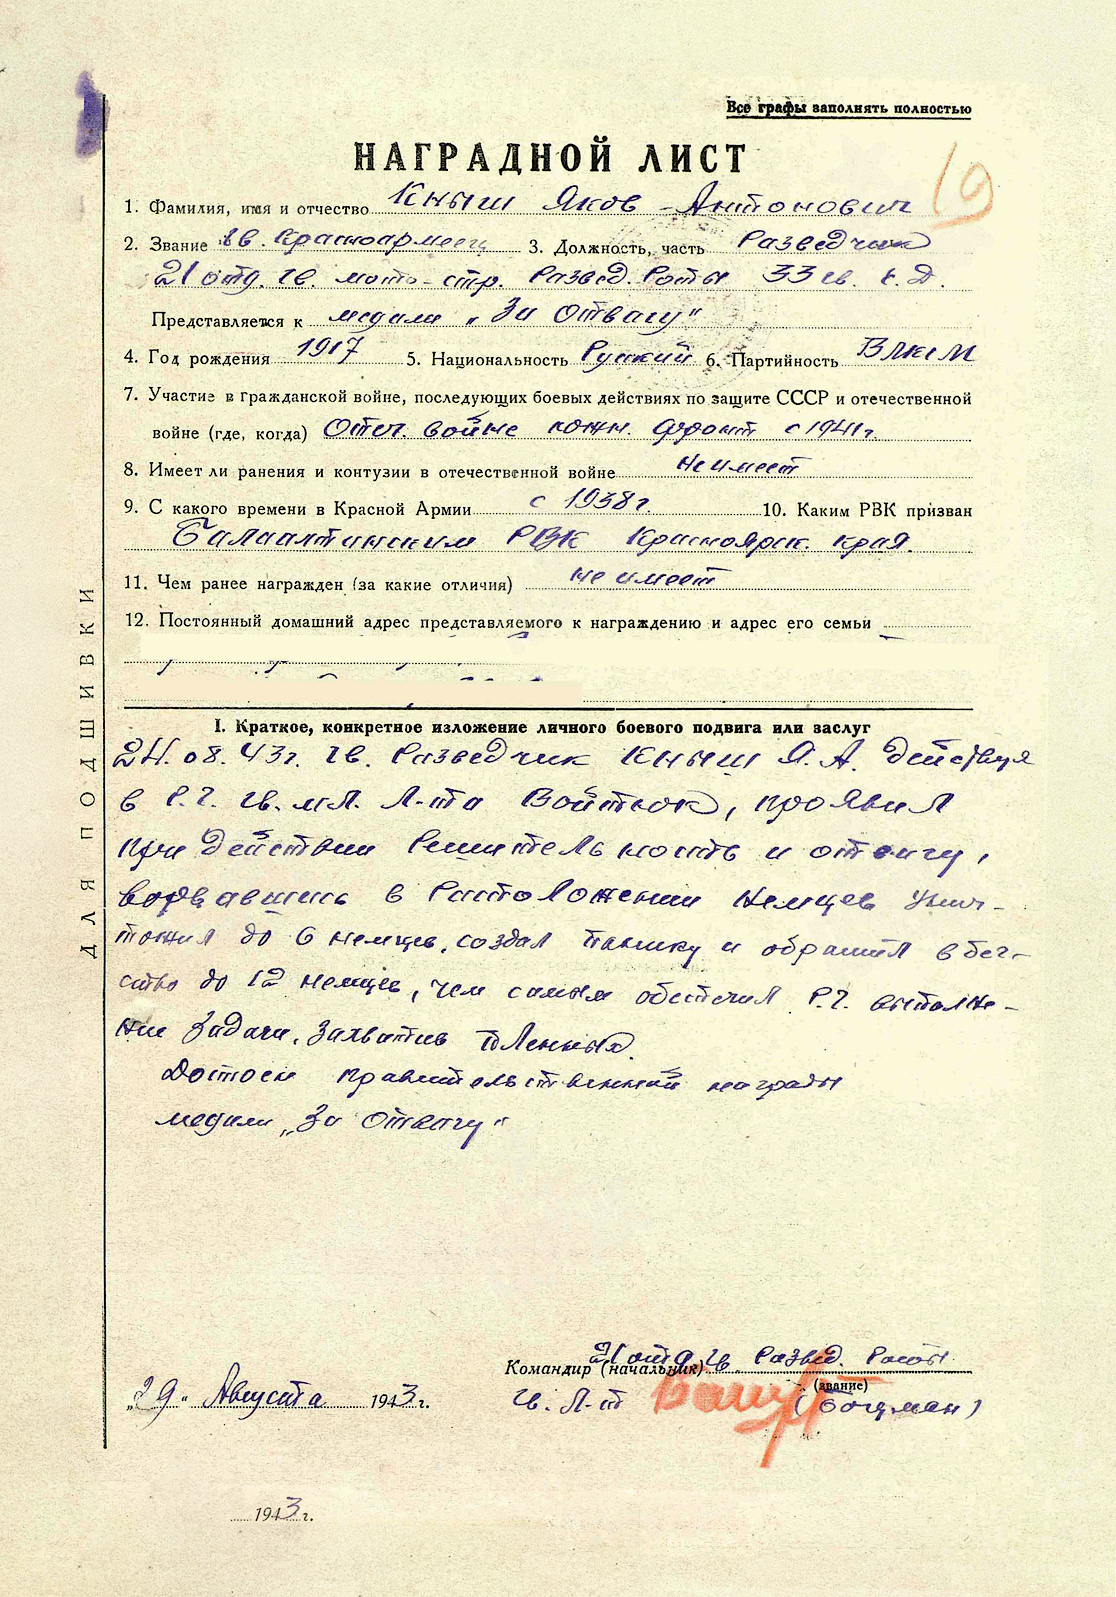 Все графы заполнять полностью
НАГРАДНОЙ ЛИСТ
19
1. Фамилия, имя и отчество Кныш Яков Антонович
2. Звание гв. Красноармеец 3. Должность, часть Разведчик
21 отд. гв. мото-стр. Развед. Роты 33 гв. с.д.
Представляется к медали „За Отвагу“
4. Год рождения 1917 5. Национальность Русский 6. Партийность ВЛКСМ
7. Участие в гражданской войне, последующих боевых действиях по защите СССР и отечественной
войне (где, когда) Отеч. войне южн. фронт с 1941 г.
8. Имеет ли ранения и контузии в отечественной войне не имеет
9. С какого времени в Красной Армии с 1938 г. 10. Каким РВК призван
РВК Красноярск. края.
11. Чем ранее награжден (за какие отличия) не имеет
12. Постоянный домашний адрес представляемого к награждению и адрес его семьи
ДЛЯ ПОДШИВКИ
I. Краткое, конкретное изложение личного боевого подвига или заслуг
24.08.43г. гв. Разведчик Кныш Я.А. действуя
в Р.Г. гв. мл. Л-та Войтюк, проявил
при действии решительность и отвагу,
ворвавшись в расположении немцев унич-
тожил до 6 немцев, создал панику и обратил в бег-
ство до 12 немцев, чем самым обеспечил Р.Г. выполне-
ние задачи, захватив пленных.
Достоен правительственной награды
медали „За Отвагу“
21 отд. гв. Развед. Роты
Командир (начальник)
(звание)
„29“ Августа 1943 г. гв. Л-т (Боцман)
1943 г.